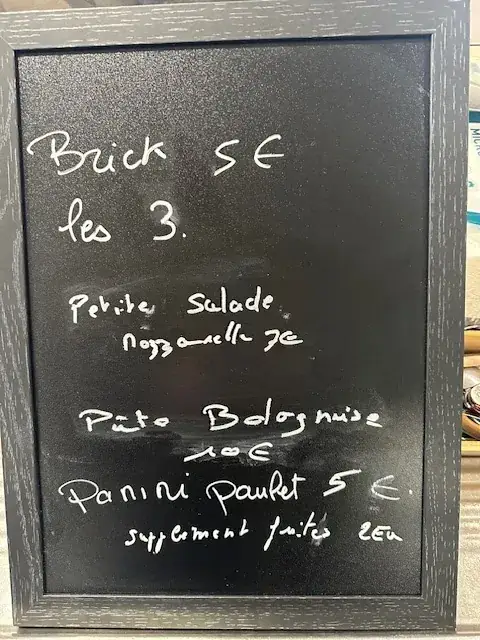 Brick 5 €
les 3.
Petite salade
mozzarella 7€
Pâte Bolognaise
10€
Panini poulet 5 €.
supplément frites 2Eu